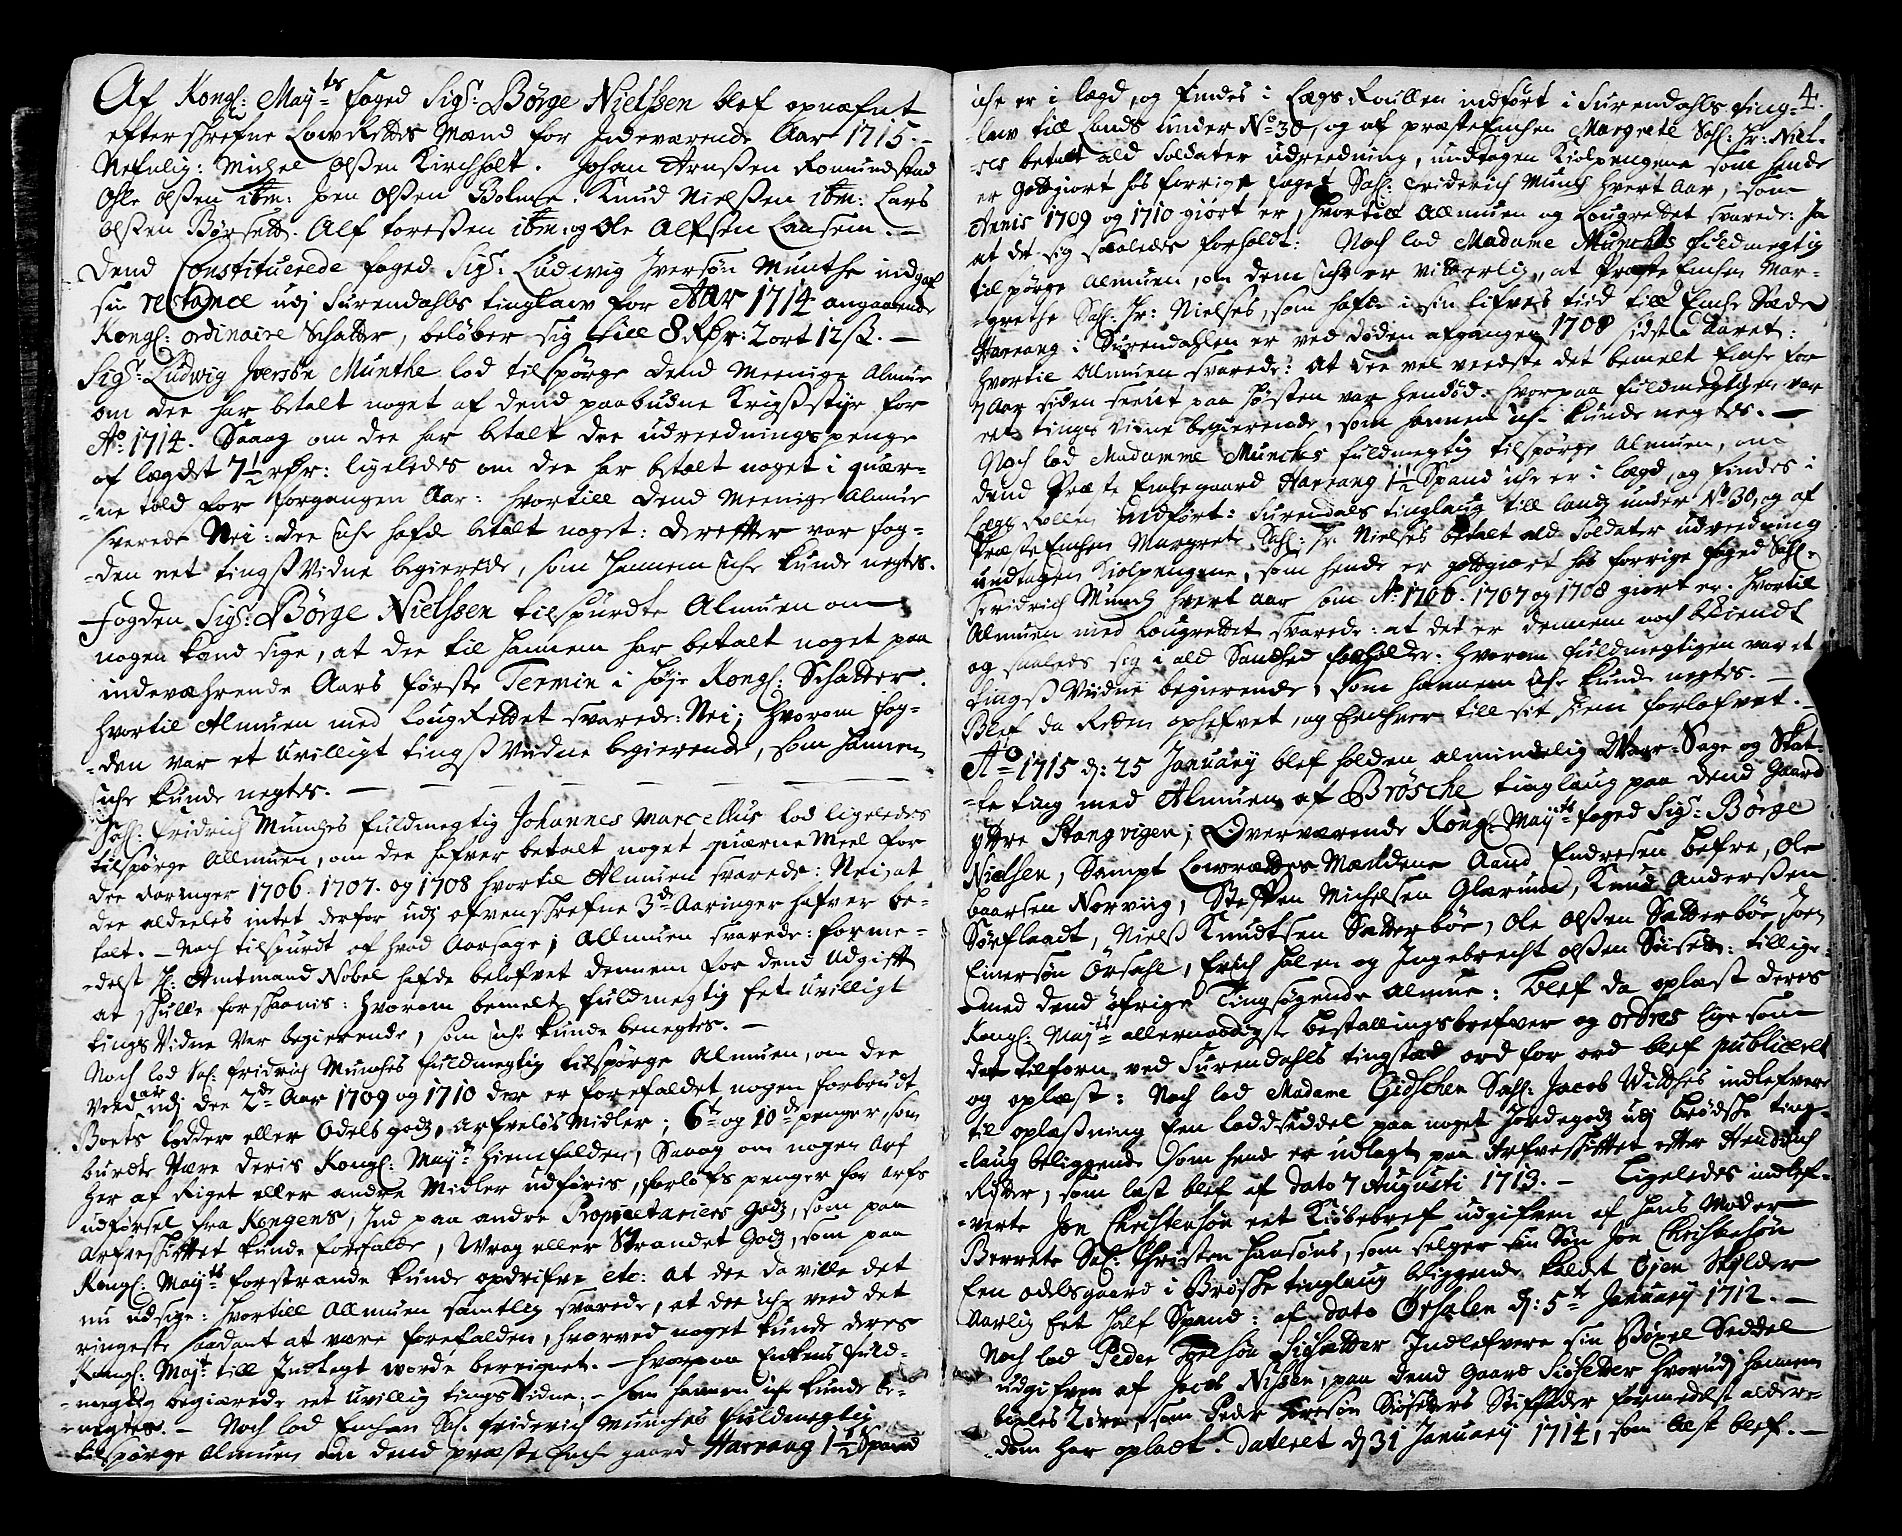 Af Kongl: May:ts foged Sigr: Børge Nielssen blef opnæfnet
efterschrefne LowRettes Mænd for Indeværende Aar 1715.-
Nefnlig: Michel Olssen Kirchholt. Johan Arnssen Romundstad
Ohle Olssen ibm: Joen Olssen Bolme. Knud Nielssen ibm: Lars
Olssen Børsett. Alf Toressen ibm: og Ole Alfsen Lansem.-
Dend Constituerede foged Sigr: Ludwig Iversøn Munthe indgaf
sin restance udj Surendahls tinglaw for Aar 1714 angaaende
Kongl: ordinaire Schatter, beløber sig till 8 Rdr: 2 ort 12 ß.-
Sigr: Ludwig Iversøn Munthe lod tilspørge dend Meenige Almue
om dee har betalt noget af dend paabudne Krigsstyr for
Ao: 1714. Saaog om dee har betalt dee udreednings penge
af lægdet 7½ rdr: ligeledes om dee har betalt noget i quær-
-ne told for forgangen Aar: hvortill dend Meenige Almue
svarede Nei: dee iche hafde betalt noget: derefter var fog-
-den eet tingß Vidne begierede, som hannem iche kunde negtes.
Fogden Sigr: Børge Nielssen tilspurdte Almuen om
nogen kand sige, at dee til hannem har betalt noget paa
indeværende Aars første Termin i høje Kongl: Schatter.
hvortil Almuen med LougRettet svarede: Nei; hvorom fog-
-den var et uvilligt tingß Vidne begierende, som hannem
iche kunde negtes.-
Sahl: Fridrich Munches fuldmegtig Johannes Marcellus lod ligeledes
tilspørge Allmuen, om dee hafver betalt noget quærne Meel for
dee aaringer 1706. 1707. og 1708 hvortil Almuen svarede: Nei, at
dee aldeeles intet derfor udj ofvenschrefne 3de Aaringer hafver be-
talt.- Noch tilspurdt af hvad Aarsage; Allmuen svarede: forme-
-delst Hr: Amtmand Nobel hafde belofvet dennem for dend Udgift
at schulle forschaanis: hvorom bemelte fuldmegtig et uvilligt
tings Vidne var begierende, som iche kunde benegtes.-
Noch lod Sal: fridrich Munches fuldmegtig tilspørge Almuen, om dee
veed, udj dee 2de Aar 1709 og 1710 der er forefaldet nogen forbrudt
Boets lodder eller Odels godz, arfveløs Midler; 6te og 10de penger, som
burde være deris Kongl: Mayt: hiemfalden, Saaog om nogen Arf
her af Riget eller andre Midler udføris, forlofs penger for Arfs
udførsel fra Kongens, Ind paa andre Proprietariers Godz, som paa
Arfveschiftet kunde forefalde, Wrag eller Strandet Godz, som paa
Kongl: May:ts forstrande kunde opdrifve etc: at dee da ville det
nu udsige: hvortill Allmuen samtlig svarede, at dee iche veed det
ringeste saadant at være forefalden, hvorved noget kunde deres
Kongl: Mayt till Indtegt worde beregnet.- hvorpaa Enkens fuld-
-megtig begiærede eet uvillig tings Vidne;- som hannem iche kunde be-
-negtes.- Noch lod Enchen Sal: friderich Munches fuldmegtig
tilspørge Almuen om dend præste Enche gaard Harrang 1½ Spand
4.
iche er i lægd, og findes i Lægs Roullen indført i Surendahls ting-
law till Lands under No 30, og af præsteEnchen Margrete Sahl: Hr: Niel-
ses betalt ald soldater udreedning, undtagen Kiolpengene som hende
er gottgiort hos forrige foget Sahl: Friderich Munch hvert Aar, som
Annis 1709 og 1710 giort er, hvortill Allmuen og Lougrettet svarede: Ja
at det sig saaledes forholdt: Noch lod Madame Munches fuldmegtig
tilspørge Almuen, om dem iche er vitterlig, at PræsteEnchen Mar-
-grethe Sahl: Hr: Nielses, som hafde i sin lifves tiid till Enche Sæde
Harrang i Surendahlen er ved døden afgangen 1708 sidst i Aaret:
hvortil Almuen svarede: at dee vel veedste det bemelte Enche for
7 Aar siden seent paa høsten var hendød. hvorpaa fuldmegtigen var
et tings Vidne begierende, som hannem iche kunde negtes.-
Noch lod Madamme Munches fuldmegtig tilspørge Almuen, om
dend Præste Enchegaard Harrang 1½ Spand iche er i lægd, og findes i
Lægs Rollen indført: Surendals tinglaug till lands under No 30, og af
PræsteEnchen Margrete Sahl: Hr: Nielses betalt ald Soldater udreedning
undtagen Kiolpengene, som hende er gottgiort hos forrige foged Sahl:
Fridrich Munch hvert aar som Ao: 1706. 1707 og 1708 giort er. hvortil
Almuen med Lougrettet svarede: at det er dennem noch bekiendt
og saaleds sig i ald Sandhed forholder. hvorom fuldmegtigen var et
tingß Vidne begierende, som hannem iche kunde negtes.-
Blef da Retten ophefvet, og Enchver till sit hiem forlofvet.-
Ao 1715 d: 25 January blef holden almindelig Waar-Sage og Skat-
-te ting med Almuen af Brøsche tinglaug paa dend Gaard
yttre Stangvigen; Overværende Kongl: May:ts foged Sigr: Børge
Nielsen, Sampt Lowrættes Mændene Aand Endresen Befre, Ole
baarsen Norviig, Steffen Michelsen Glærum, Knud Anderssen
Sørfladt, Nielß Knudtsen Sætterbøe, Ole Olssen Sætterbøe, Joen
Einersøn Ørsahl, Erich Halen og Ingebrecht Olssen Siisett: tillige-
-med dend øfrige Tingsøgende Almue: blef da oplæst deres
Kongl: May:ts allernaadigst bestallingsbrefver og ordres lige som
det tilforn ved Surendahls tingstæd ord for ord blef publiceret
og oplæst: Noch lod Madame Gidschen Sahl: Jacob Wildhes indlefvere
til oplæßning Een loddseddel paa noget Jordegodz udj brødsche ting-
-laug beliggende som hende er udlagt paa Arfveschiftet efter Hendrich
Riiber, som læst blef af dato 7 Augusti 1713.- Ligeledes indlef-
-verte Jon Christensøn eet Kiøbebref udgifven af hans Moder
Berrete Sal: Christen Hansøns, som selger sin Søn Jon Christensøn
Een odelsgaard i Brøsche tinglaug beliggende kaldet Øjen Skylder
Aarlig Eet half Spand: af dato Ørsalen d: 5te January 1712.-
Noch lod Peder Toresøn Siisetter Indlefvere sin Bøxel Seddel
udgifven af Jacob Nissen, paa dend Gaard Siisetter hvorudj hannem
bøxles 2 øre, som Peder Toresøn Siisetters Stiffader formedelst aldere-
-dom har opladt. dateret d 31 January 1714, som læst blef.-